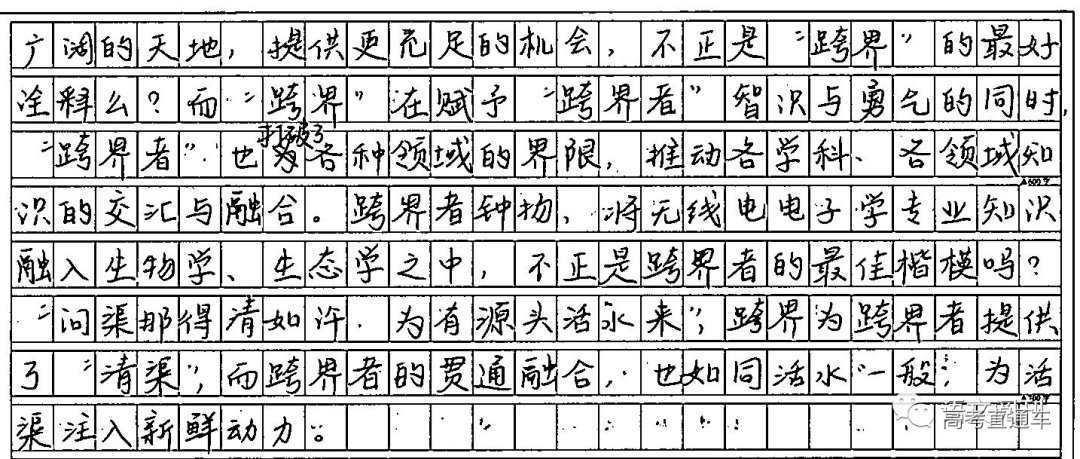 广阔的天地，提供更充足的机会，不正是“跨界”的最好
诠释么？而“跨界”在赋予“跨界者”智识与勇气的同时，
“跨界者”也打破了各种领域的界限，推动各学科、各领域知
▲600字
识的交汇与融合。跨界者钟扬，将无线电电子学专业知识
融入生物学、生态学之中，不正是跨界者的最佳楷模吗？
“问渠那得清如许，为有源头活水来”，跨界为跨界者提供
了“清渠”，而跨界者的贯通融合，也如同活水“一般”，为活
▲700字
渠注入新鲜动力。
高考直通车